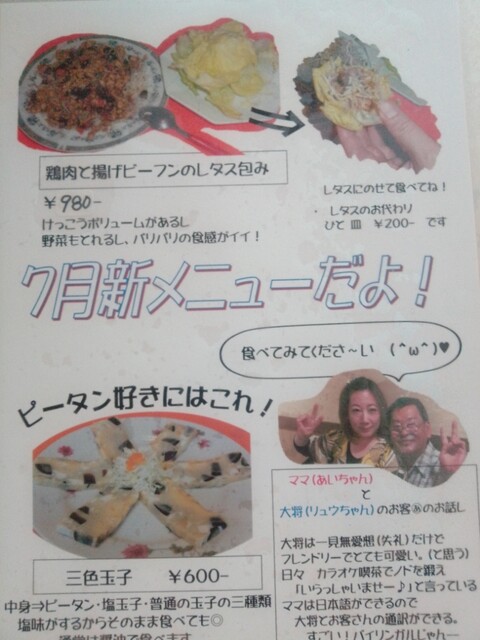 鶏肉と揚げビーフンのレタス包み
￥980-
けっこうボリュームがあるし
野菜もとれるし、パリパリの食感がイイ！
レタスにのせて食べてね！
・ レタスのお代わり
ひと皿 ￥200- です
7月新メニューだよ！
食べてみてくださ～い (^ω^)♥
ピータン好きにはこれ！
三色玉子 ￥600-
中身⇒ピータン・塩玉子・普通の玉子の三種類
塩味がするからそのまま食べても◎
ママ(あいちゃん)
と
大将(リュウちゃん)のお客㊙のお話し
大将は一見無愛想(失礼)だけで
フレンドリーでとても可愛い。(と思う)
日々 カラオケ喫茶でノドを鍛え
「いらっしゃいませー♪」と言っている
ママは日本語ができるので
大将とお客さんの通訳ができる。
すごい！バイリンガルじゃん